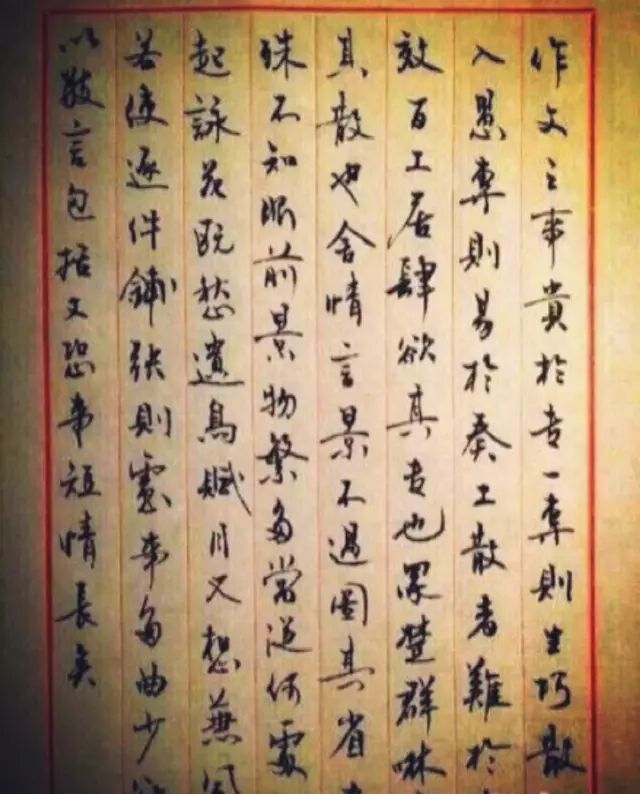 作文之事貴於专一專則生巧散
入愚專則易於奏工散者難於
效百工居肆欲其专也眾楚群咻
其散也舍情言景不過圖其省
殊不知眼前景物繁多當從何處
起詠花既愁遺鳥賦月又想兼風
若使逐件鋪張則慮事多曲少
以數言包括又恐事短情長矣